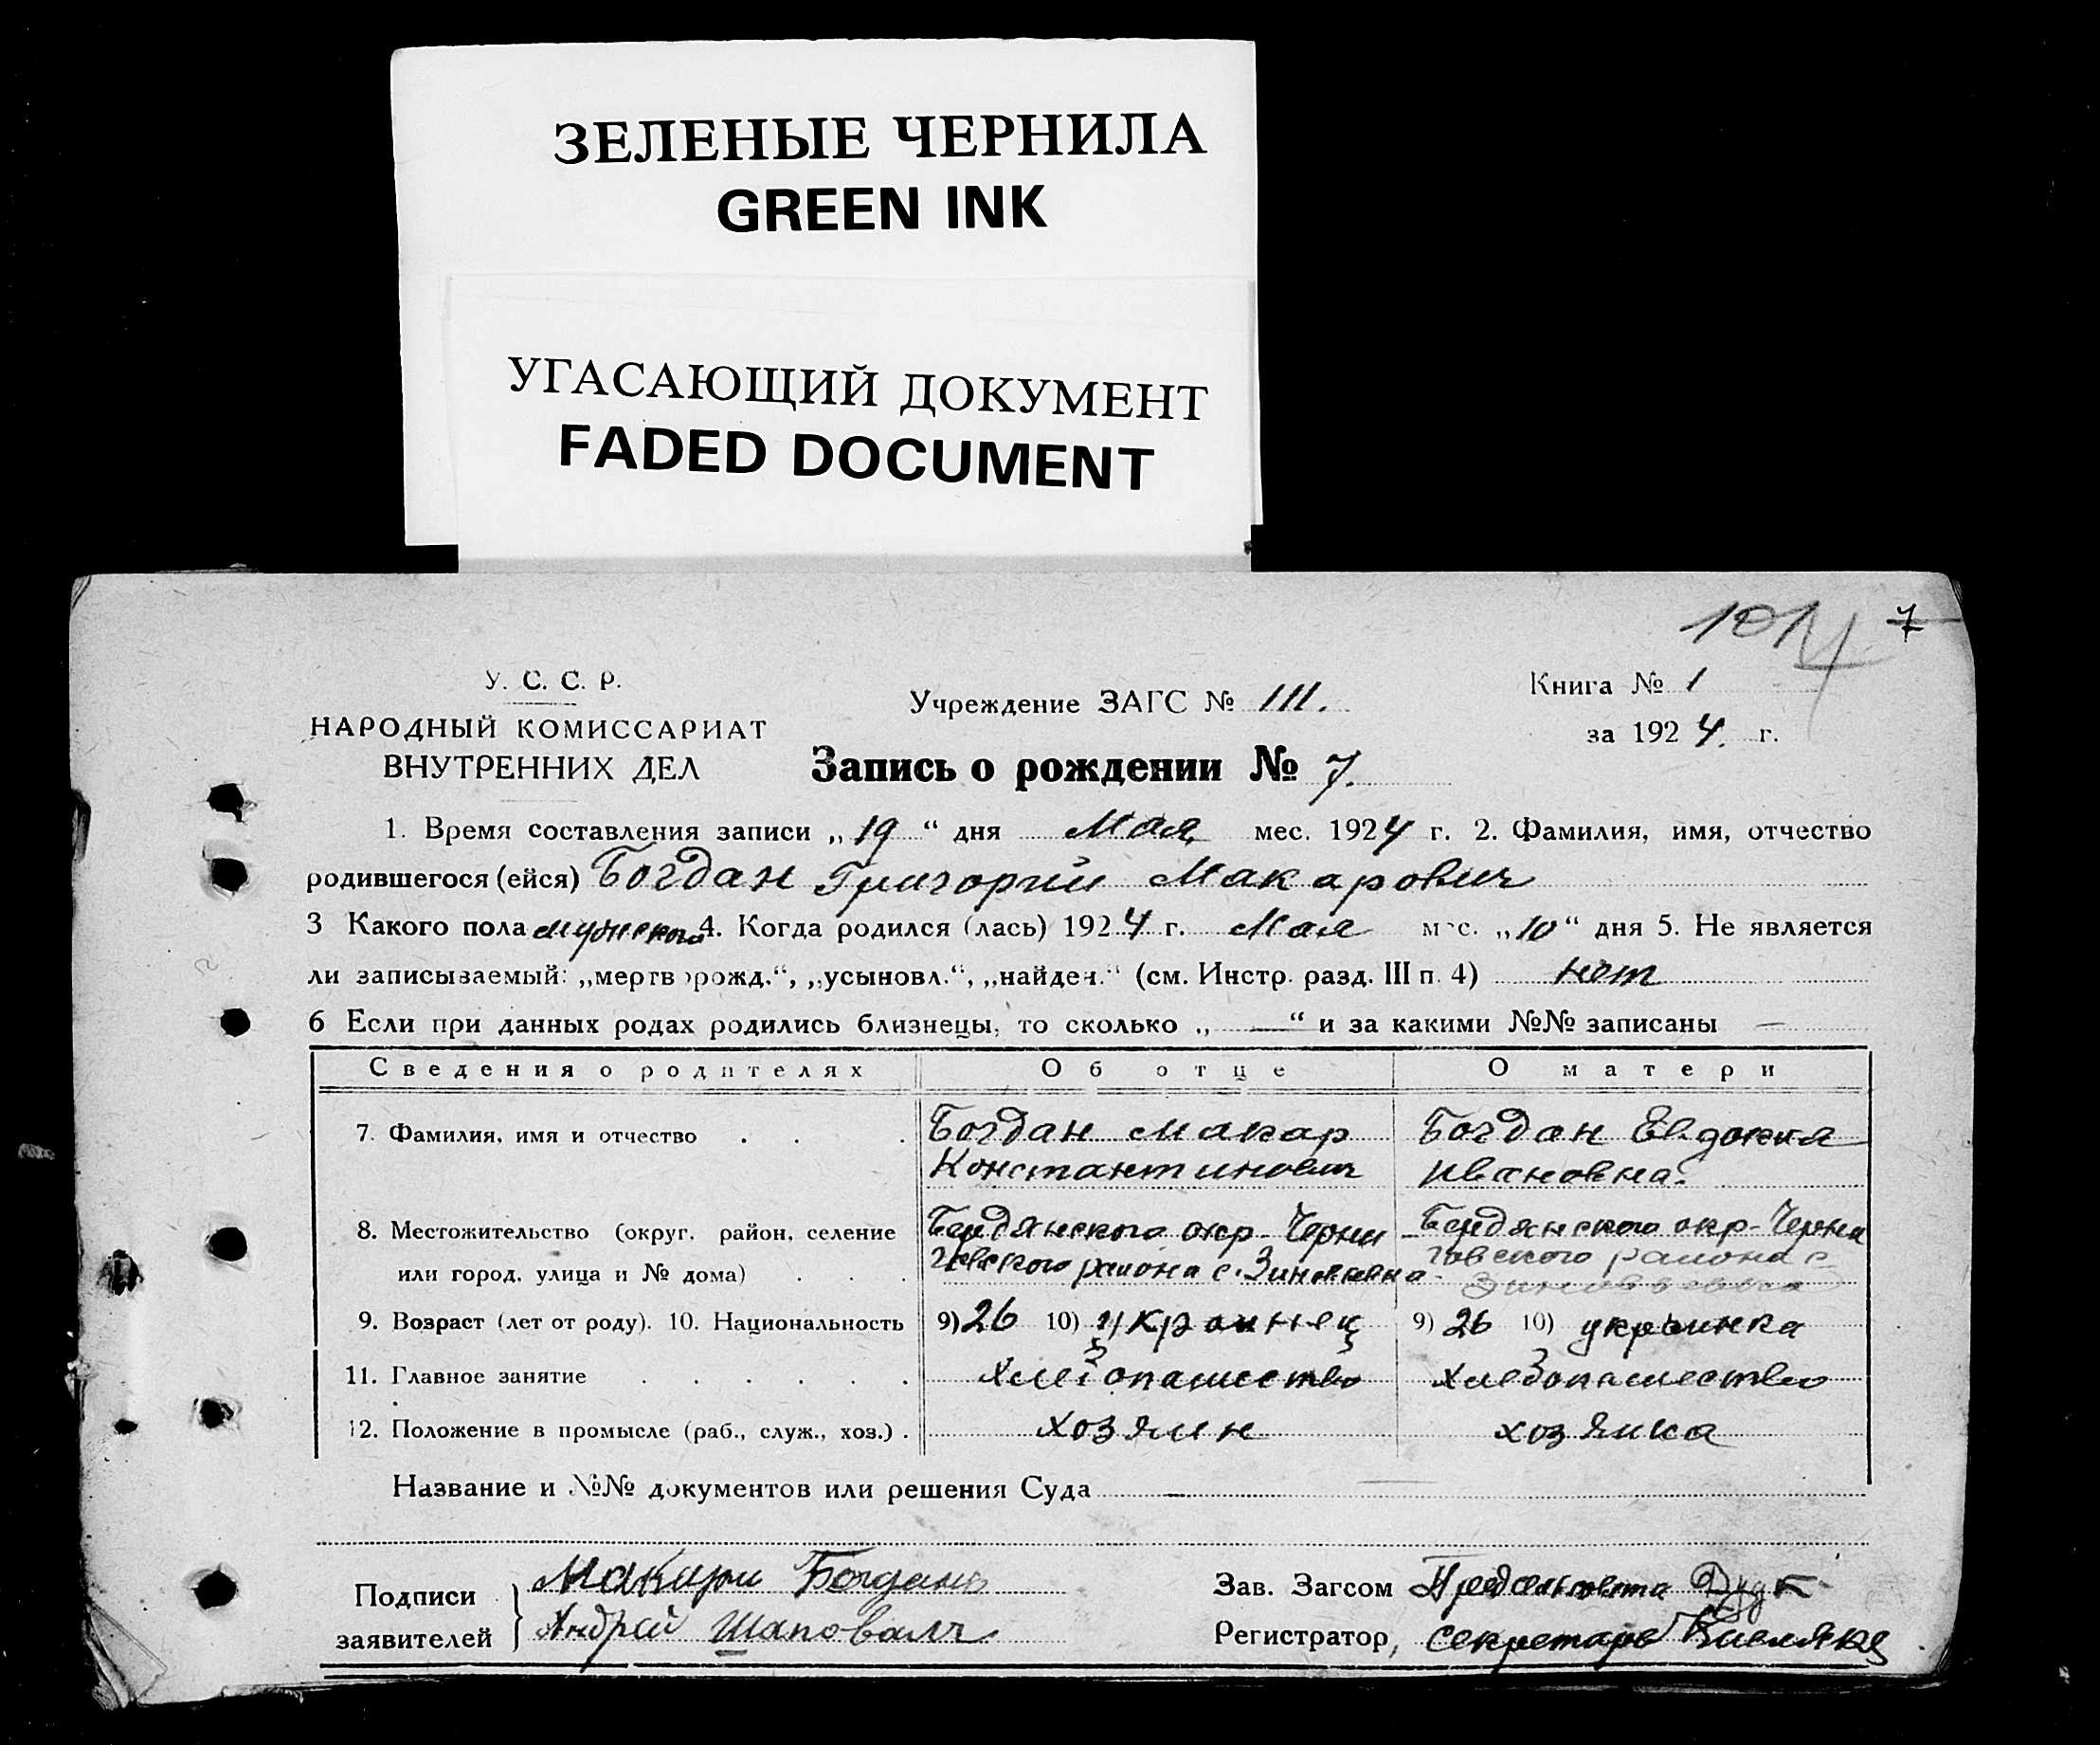 ЗЕЛЕНЫЕ ЧЕРНИЛА
GREEN INK
УГАСАЮЩИЙ ДОКУМЕНТ
FADED DOCUMENT
101 7
У. С. С. Р.
НАРОДНЫЙ КОМИССАРИАТ
ВНУТРЕННИХ ДЕЛ
Учреждение ЗАГС № 111.
Книга № 1
за 1924. г.
Запись о рождении № 7.
1. Время составления записи „19“ дня Мая мес. 1924 г. 2. Фамилия, имя, отчество
родившегося (ейся) Богдан Григорий Макарович
3 Какого пола мужского 4. Когда родился (лась) 1924 г. Мая мес. „10“ дня 5. Не является
ли записываемый: „мертворожд.“, „усыновл.“, „найден.“ (см. Инстр. разд. III п. 4) нет
6 Если при данных родах родились близнецы, то сколько „—“ и за какими №№ записаны —
Сведения о родителях Об отце О матери
7. Фамилия, имя и отчество . . . Богдан Макар Богдан Евдокия
Константинович Ивановна.
8. Местожительство (округ, район, селение Бердянского окр- Черни Бердянского окр- Черни
или город, улица и № дома) . . . говского района с. говского района с
9. Возраст (лет от роду). 10. Национальность 9) 26 10) украинец 9) 26 10) украинка
11. Главное занятие . . . . . . хлебопашество хлебопашество
12. Положение в промысле (раб., служ., хоз.) . хозяин хозяйка
Название и №№ документов или решения Суда —
Подписи
заявителей
Макарий Богдан
Андрей Шаповал
Зав. Загсом Предсельсовета
Регистратор, секретарь